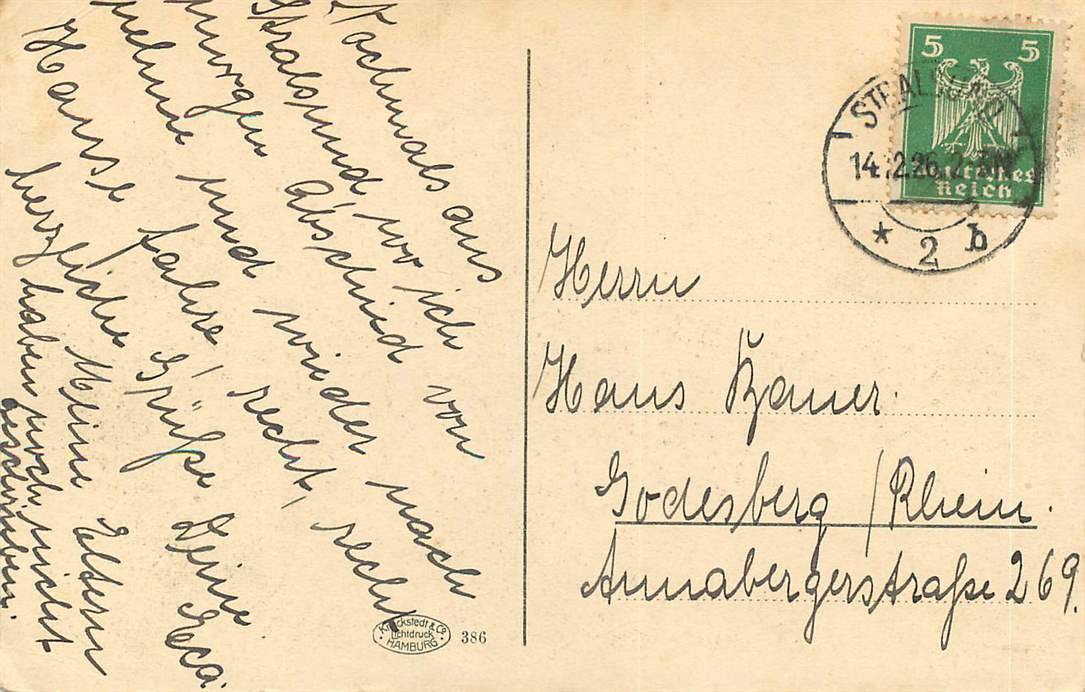 Nochmals aus
Stralsund, wo ich
morgen Abschied von
nehme und wieder nach
Hause fahre, recht, recht
herzliche Grüße Deine
Meine Eltern
haben noch nicht
geschrieben.
5 5
STRALSUND
14.2.26.2-3N
Deutsches
Reich
* 2 b
Herrn
Hans Bauer.
Godesberg / Rhein.
Annabergerstraße 269.
Knackstedt & Co.
Lichtdruck
HAMBURG
386